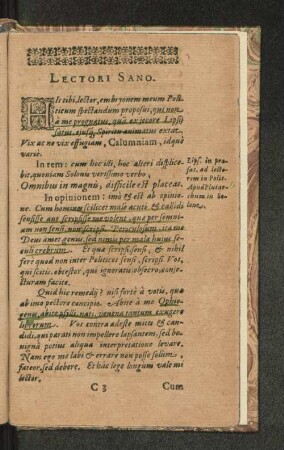 LECTORI SANO.
His tibi, lector, embryonem meum Poli-
ticum spectandum proposui, qui non
à me prognatus, quàm ex jecore Lipsij
satus, ejusq; Spiritu animatus extat.
Vix ac ne vix effugiam, Calumniam, idq;
variè.
In rem: cum hoc isti, hoc alteri displice-
bit, quoniam Solonis verissimo verbo,
Omnibus in magnis, difficile est placeas.
In opinionem: imò & est ab opinio-
ne. Cum homines scilicet malè et calidè
sensisse aut scripsisse me volent, quæ per somni-
um non sensi, non scripsi. Periculosum, ita me
Deus amet genus, sed nimis per male huius se-
culi crebrum. Et quia scripsi, sensi, & nihil
ferè quod non inter Politicos sensi, scripsi. Vos,
qui scitis. obtestor, qui ignoratis obsecro, conje-
cturam facite.
Quid hic remedij? nisi fortè à vatis, quo
ab imo pectore concipio. Abite à me Ophio-
genus, abite psilli, nati, venena tantum exugere
librorum. Vos contra adeste mites & can-
didi, qui parati non impellere lapsantem, sed be-
nignâ potius aliqua interpretatione levare.
Nam ego me labi & errare non posse solùm,
fateor, sed debere. Et hâc lege longùm vale mi
lector,
C 3 Cum
Lips. in præ-
fat. ad lecto-
rem in Polit.
Apud Plutar-
chum in So-
lone.